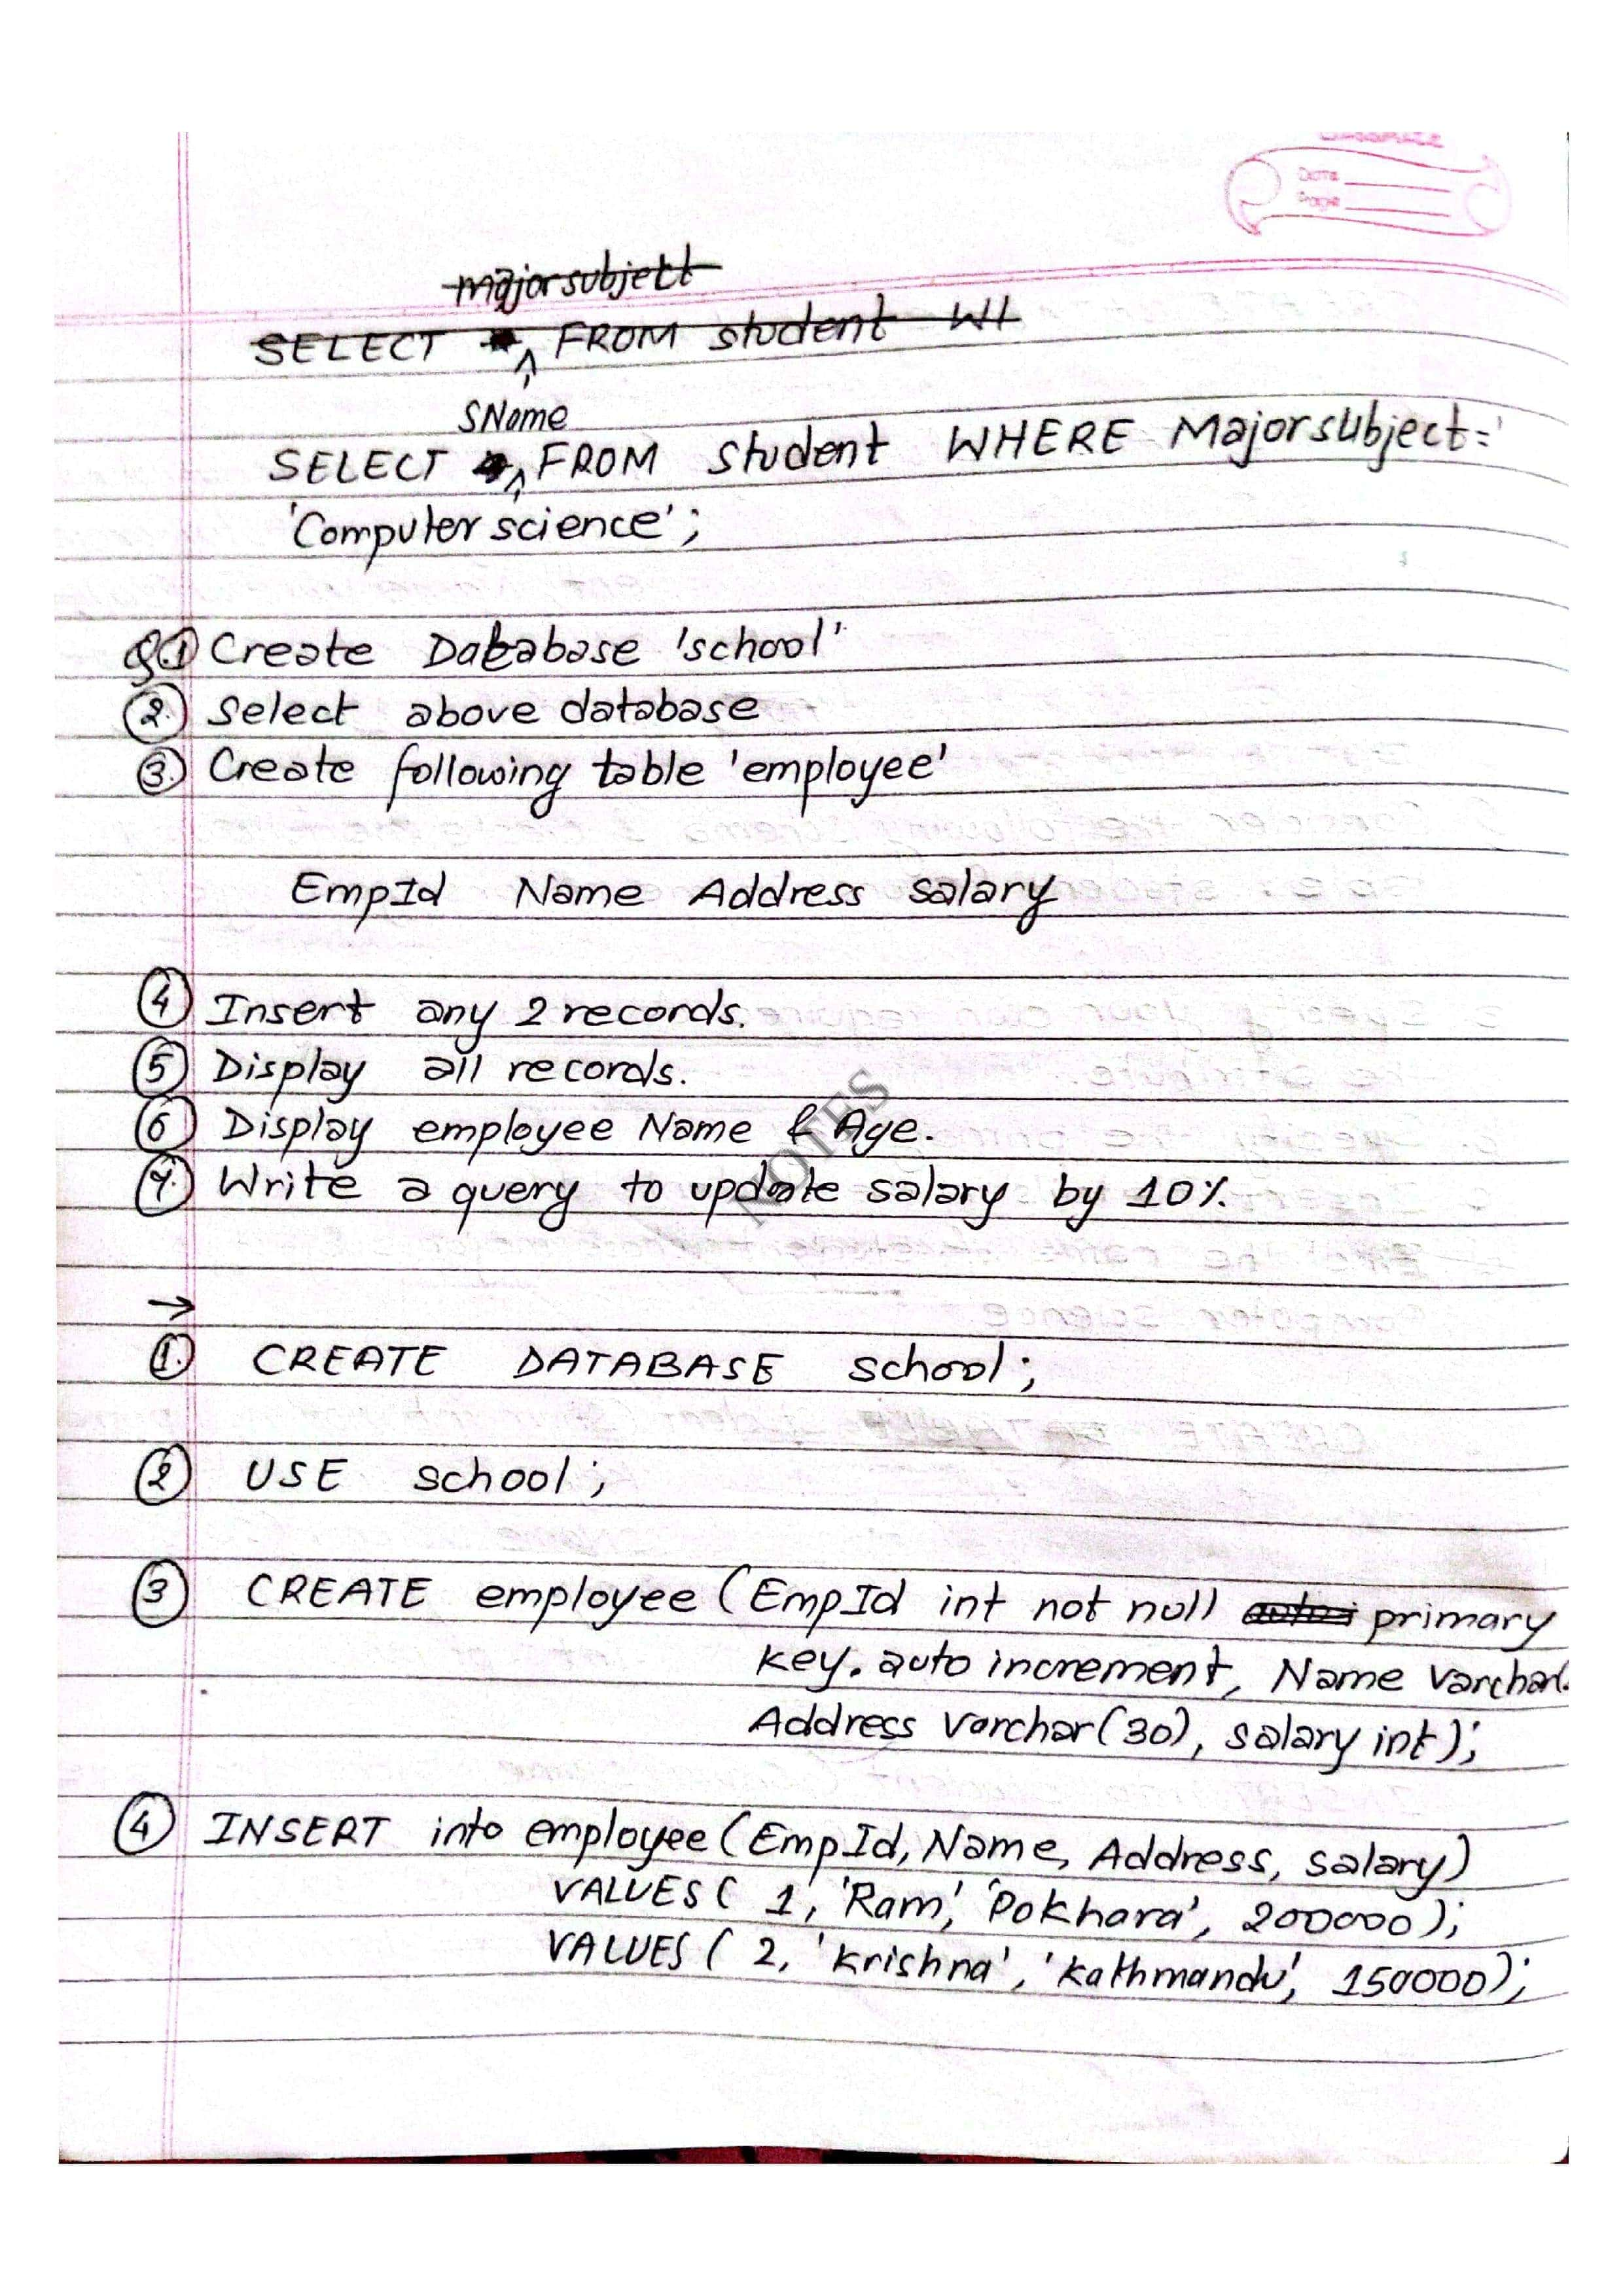 majorsubject
SELECT FROM student WH
SName
SELECT FROM student WHERE Majorsubject=
'Computer science';
Q.1 Create Database 'school'
2. Select above database
3. Create following table 'employee'
EmpId Name Address salary
4 Insert any 2 records.
5 Display all records.
6 Display employee Name & Age.
7. Write a query to update salary by 10%.
NOTES
→
1. CREATE DATABASE school;
2 USE school;
3 CREATE employee (EmpId int not null primary
key. auto increment, Name varchar(
Address varchar(30), salary int);
4 INSERT into employee (EmpId, Name, Address, salary)
VALUES ( 1, 'Ram', 'Pokhara', 200000);
VALUES ( 2, 'Krishna', 'Kathmandu', 150000);